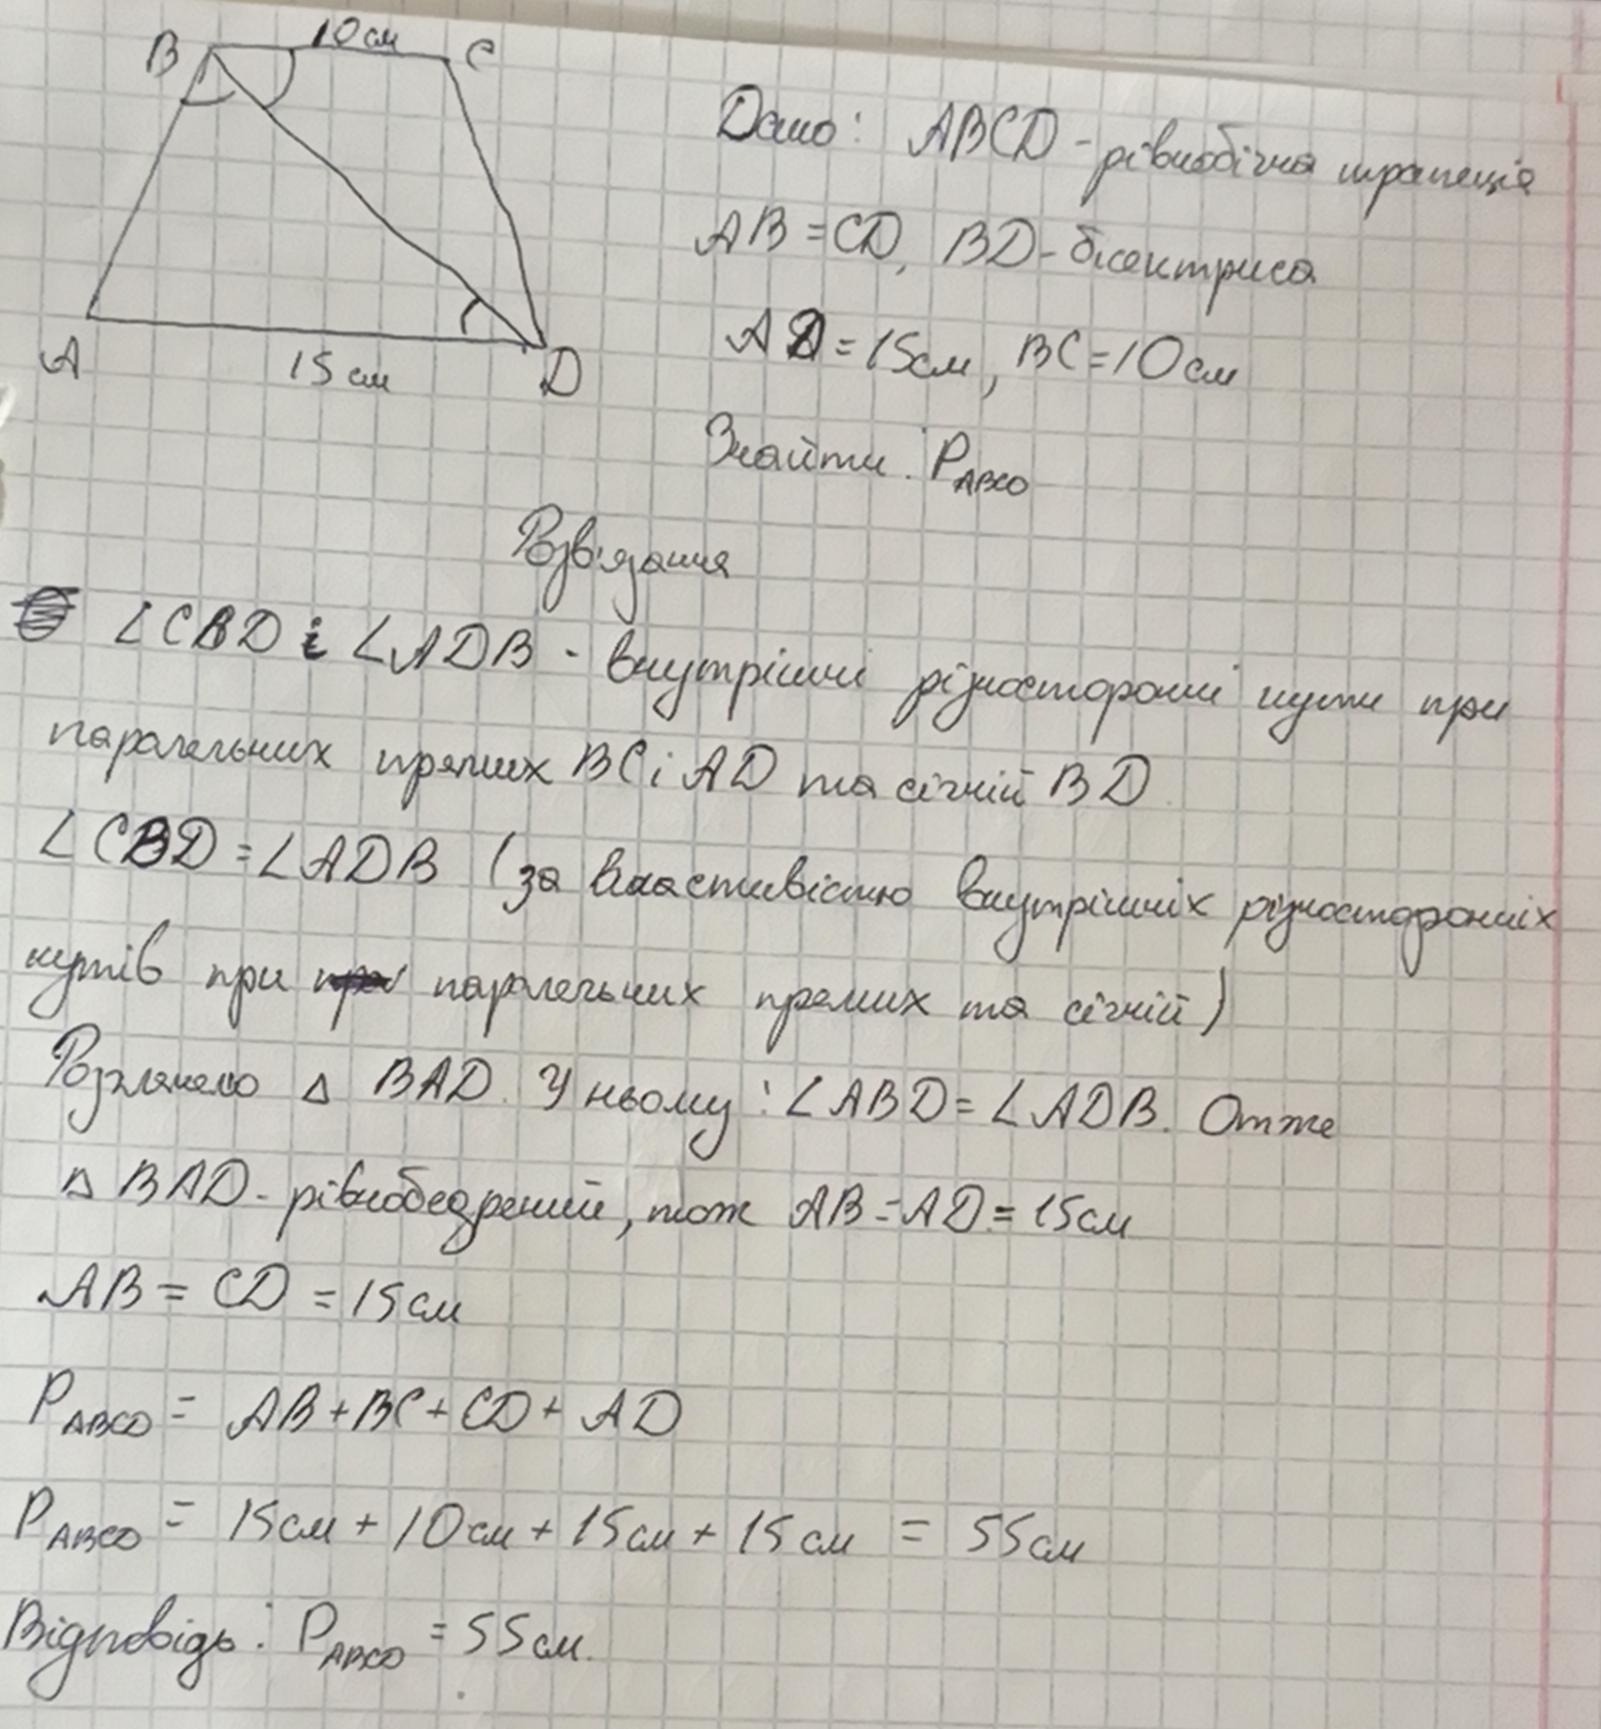 B 10 см C
A 15 см D
Дано: ABCD - рівнобічна трапеція
AB = CD, BD - бісектриса
AD = 15см, BC = 10 см
Знайти: P ABCD
Розв'язання
∠CBD і ∠ADB - внутрішні різносторонні кути при
паралельних прямих BC і AD та січній BD
∠CBD = ∠ADB (за властивістю внутрішніх різносторонніх
кутів при паралельних прямих та січній)
Розглянемо △ BAD. У ньому: ∠ABD = ∠ADB. Отже
△ BAD - рівнобедрений, тож AB = AD = 15см
AB = CD = 15см
P ABCD = AB + BC + CD + AD
P ABCD = 15см + 10см + 15см + 15 см = 55см
Відповідь: P ABCD = 55см.